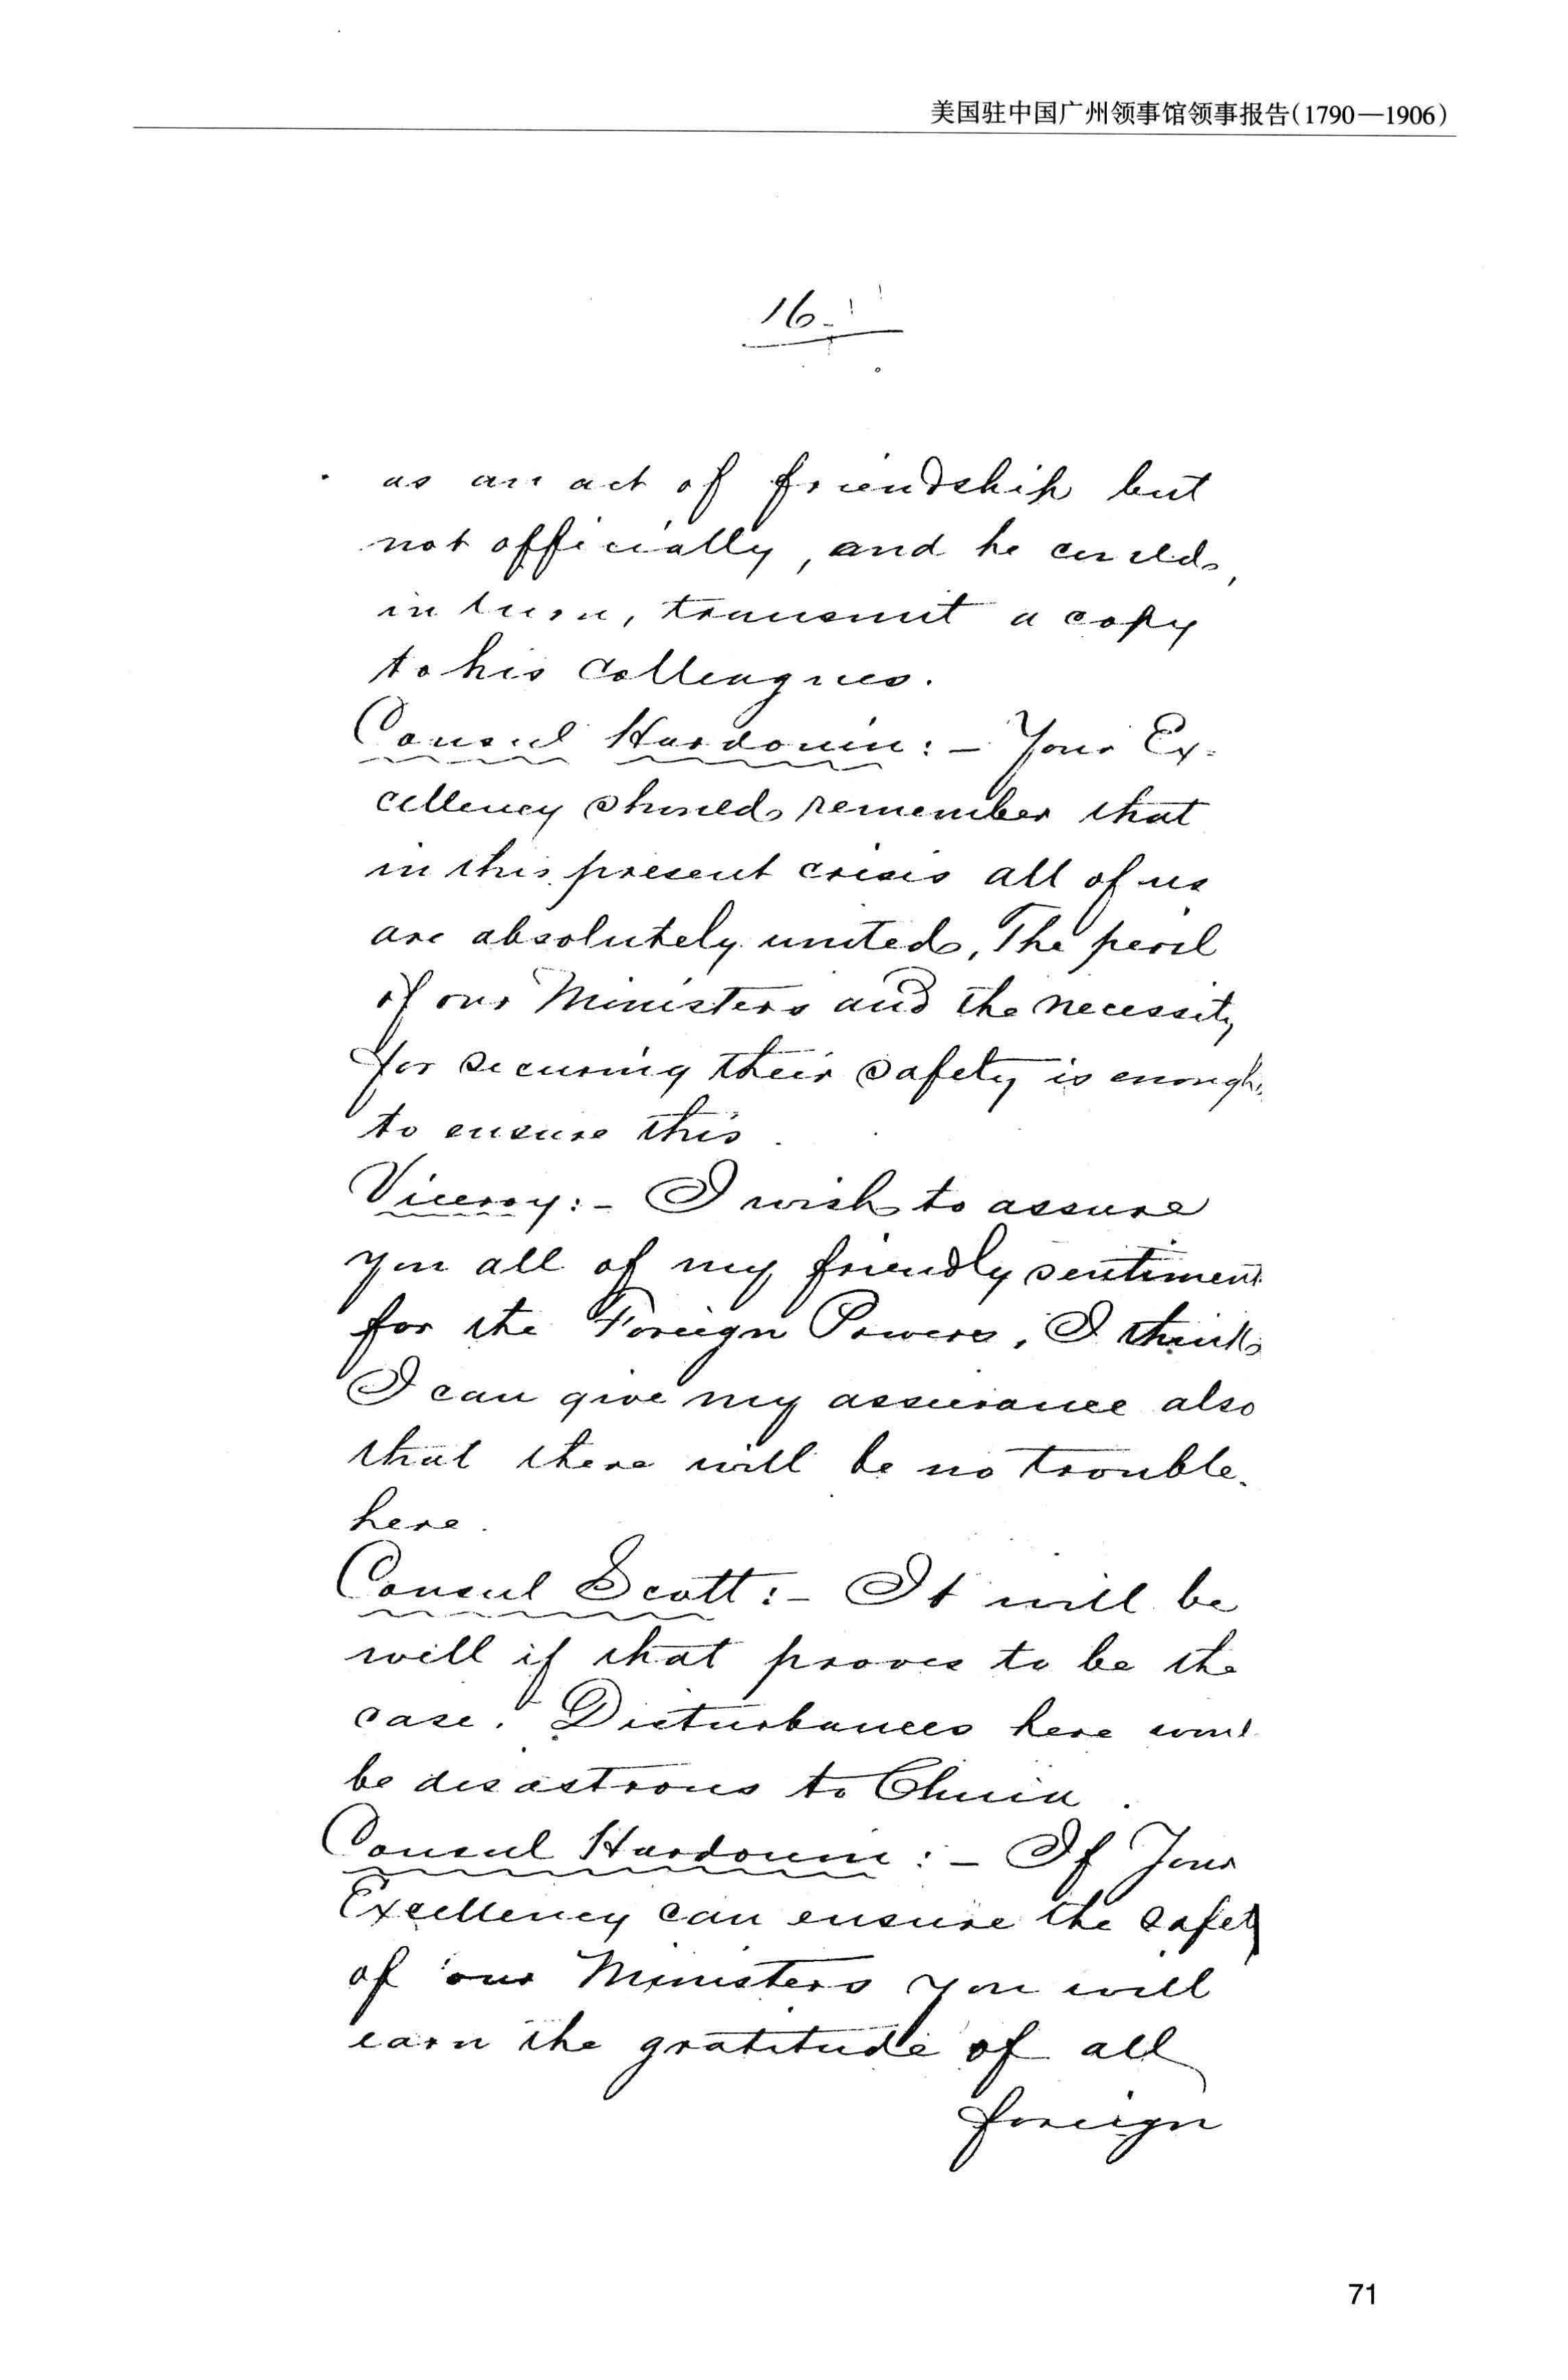 美国驻中国广州领事馆领事报告(1790—1906)
16.
as an act of friendship but
not officially, and he could,
in turn, transmit a copy
to his colleagues.
Consul Hardouin:- Your Ex-
cellency should remember that
in this present crisis all of us
are absolutely united, The peril
of our Ministers and the necessity
for securing their safety is enough
to ensure this.
Viceroy:- I wish to assure
you all of my friendly sentiment
for the Foreign Powers, I think
I can give my assurance also
that there will be no trouble
here.
Consul Scott:- It will be
well if that proves to be the
case. Disturbances here woul
be disastrous to China.
Consul Hardouin:- If Your
Excellency can ensure the safety
of our Ministers you will
earn the gratitude of all
foreign
71